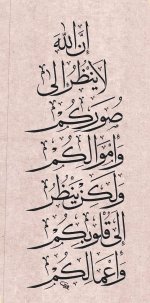 إِنَّ اللّٰهَ
لَا يَنْظُرُ إِلَى
صُوَرِكُمْ
وَأَمْوَالِكُمْ
وَلٰكِنْ يَنْظُرُ
إِلَى قُلُوبِكُمْ
وَأَعْمَالِكُمْ